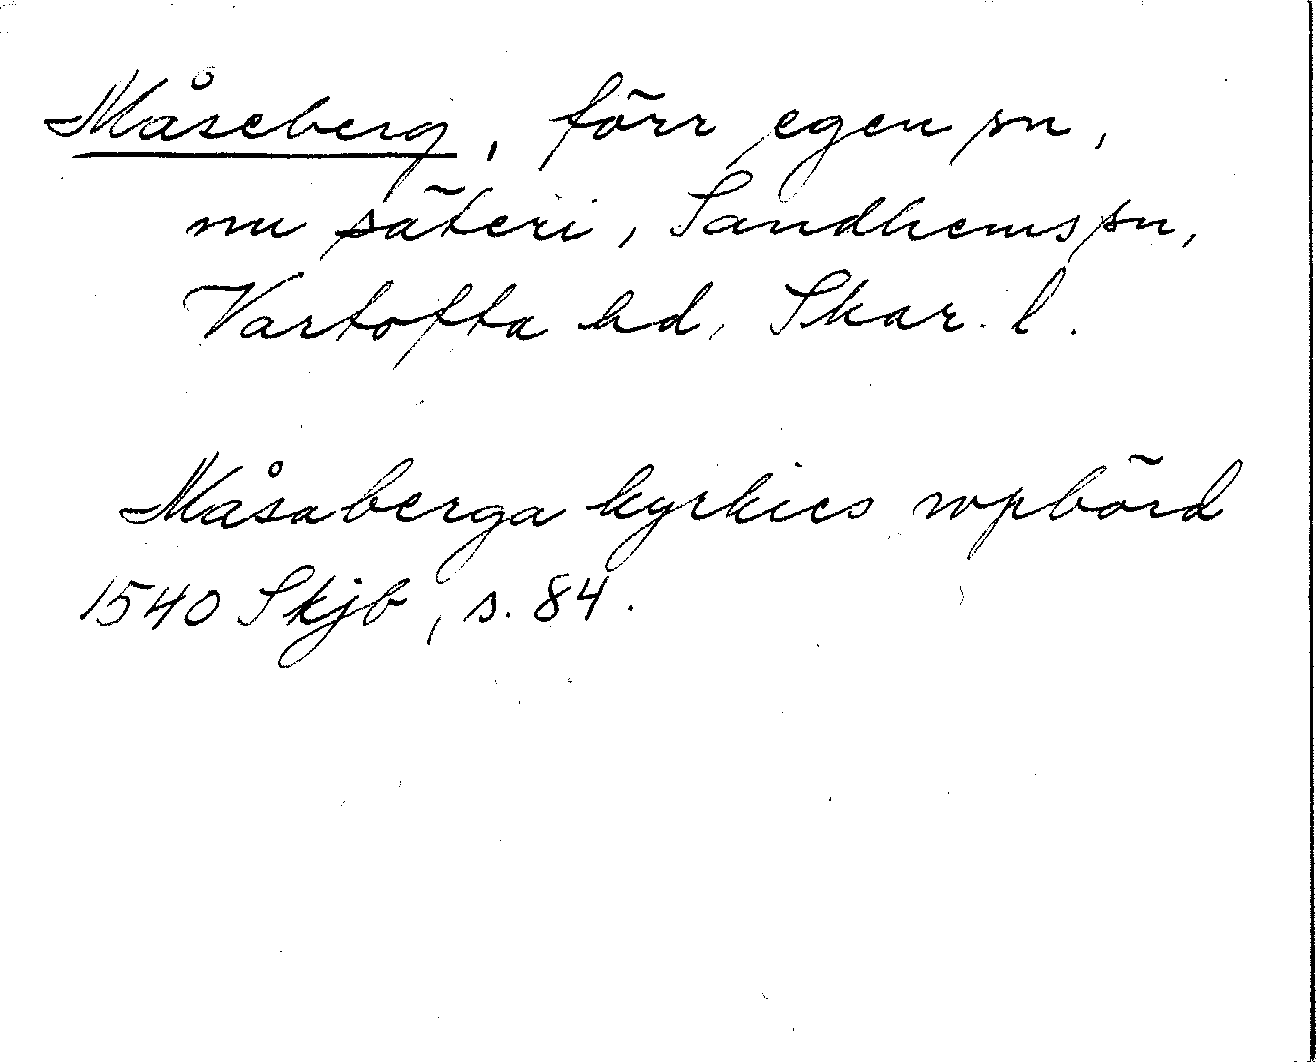 Måseberg, förr egen sn,
nu säteri, Sandhems sn,
Vartofta hd, Skar. l.
Måsaberga kyrkies wpbörd
1540 Skjb, s. 84.